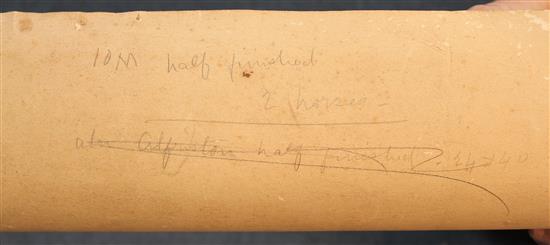 10M half finished
2 horses -
also Alfriston half finished 24 x 40